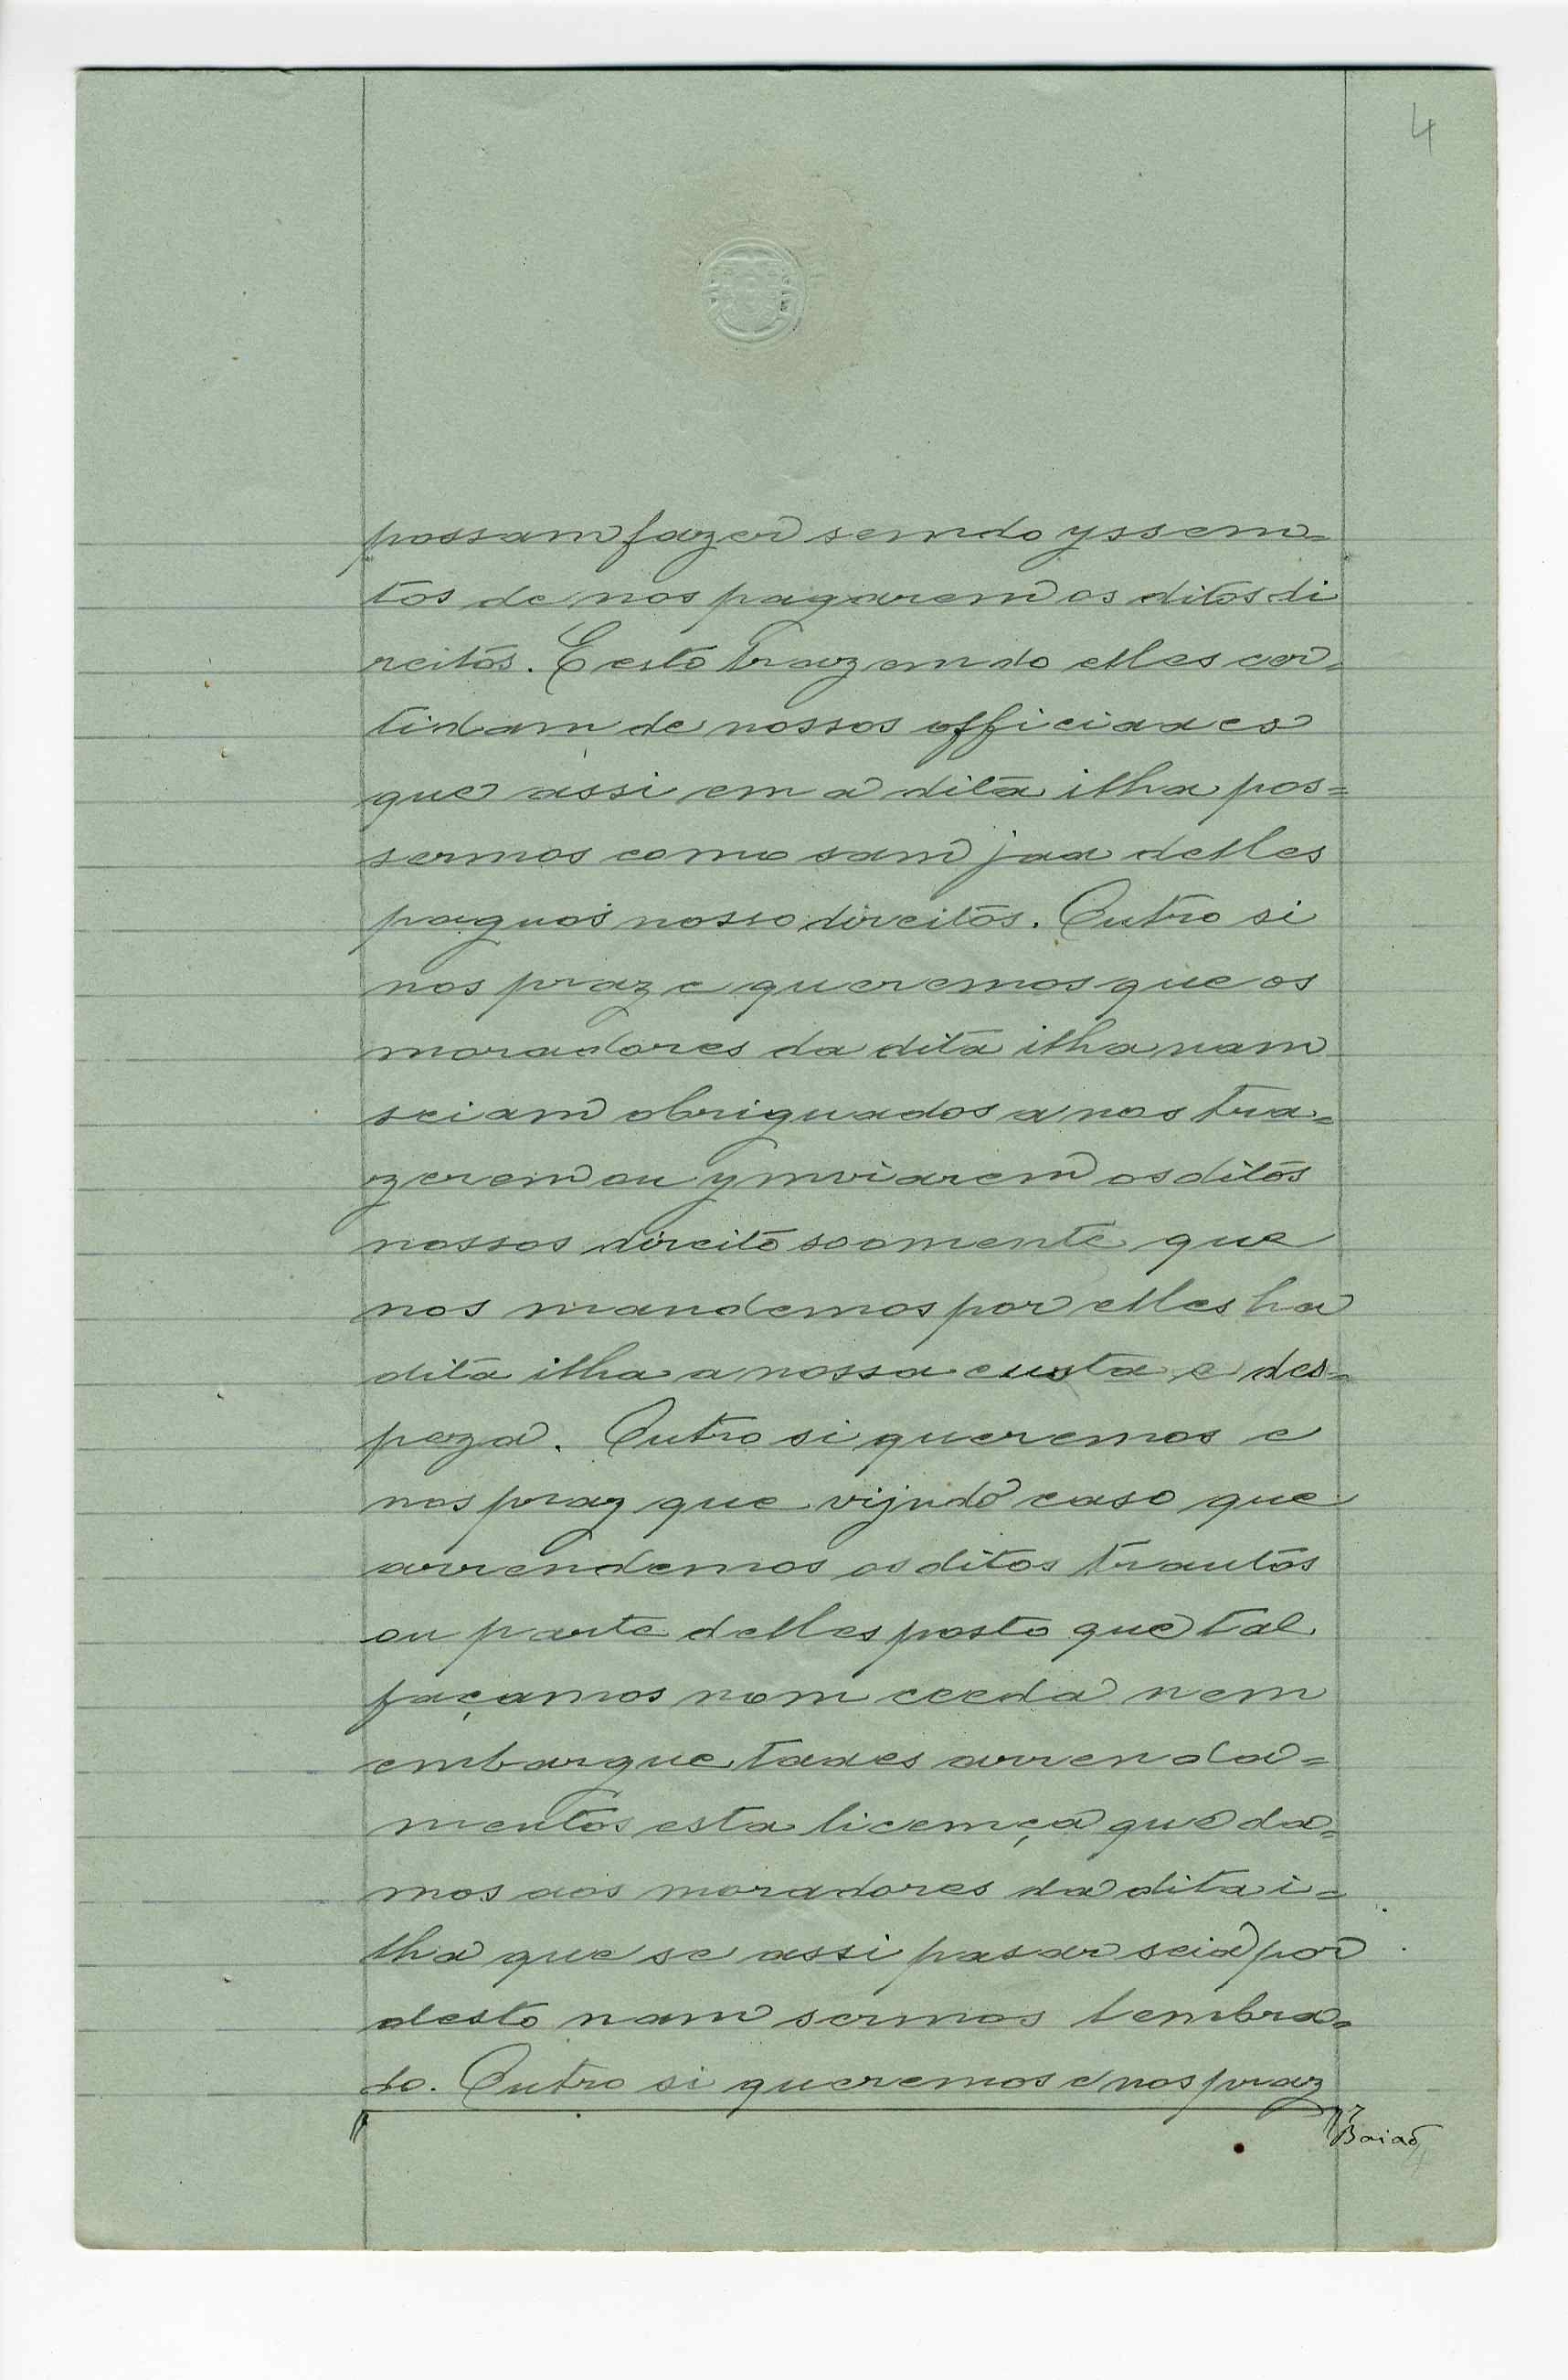 4
possam fazer semdo yssem=
tos de nos pagarem os ditos di
reitos. E esto trazemdo elles cer=
tidam de nossos officiaaes
que assi em a dita ilha pos=
sermos como sam jaa delles
paguos nosso direitos. Outro si
nos praz e queremos que os
moradores da dita ilha nam
seiam obriguados a nos tra=
zerem ou ymviarem os ditos
nossos direito soomente que
nos mandemos por elles ha
dita ilha a nossa custa e des=
peza. Outro si queremos e
nos praz que vijndo caso que
arrendemos os ditos trautos
ou parte delles posto que tal
façamos nom ceeda nem
embargue taaes arrenda=
mentos esta licemça que da=
mos aos moradores da dita i=
lha que se assi pasar seia por
desto nam sermos lembra=
do. Outro si queremos e nos praz
Baiaõ